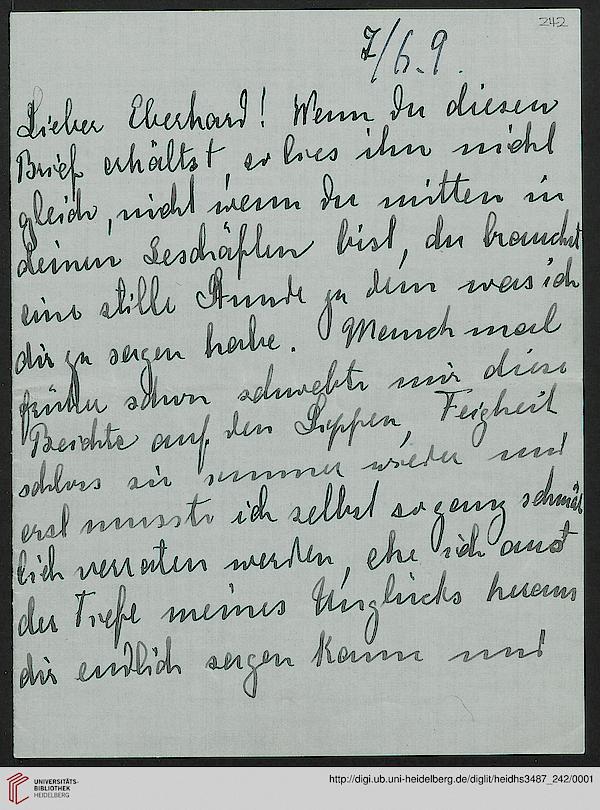 242
7/6.9.
Lieber Eberhard! Wenn du diesen
Brief erhältst, so lies ihn nicht
gleich, nicht wenn du mitten in
deinen Geschäften bist, du brauchst
eine stille Stunde zu dem was ich
dir zu sagen habe. Manchmal
früher schon schwebte mir diese
Beichte auf den Lippen, Feigheit
schloss sie immer wieder und
erst musste ich selbst so ganz schmäh
lich verraten werden, ehe ich aus
der Tiefe meines Unglücks heraus
dir endlich sagen kann und
UNIVERSITÄTS-
BIBLIOTHEK
HEIDELBERG
http://digi.ub.uni-heidelberg.de/diglit/heidhs3487_242/0001